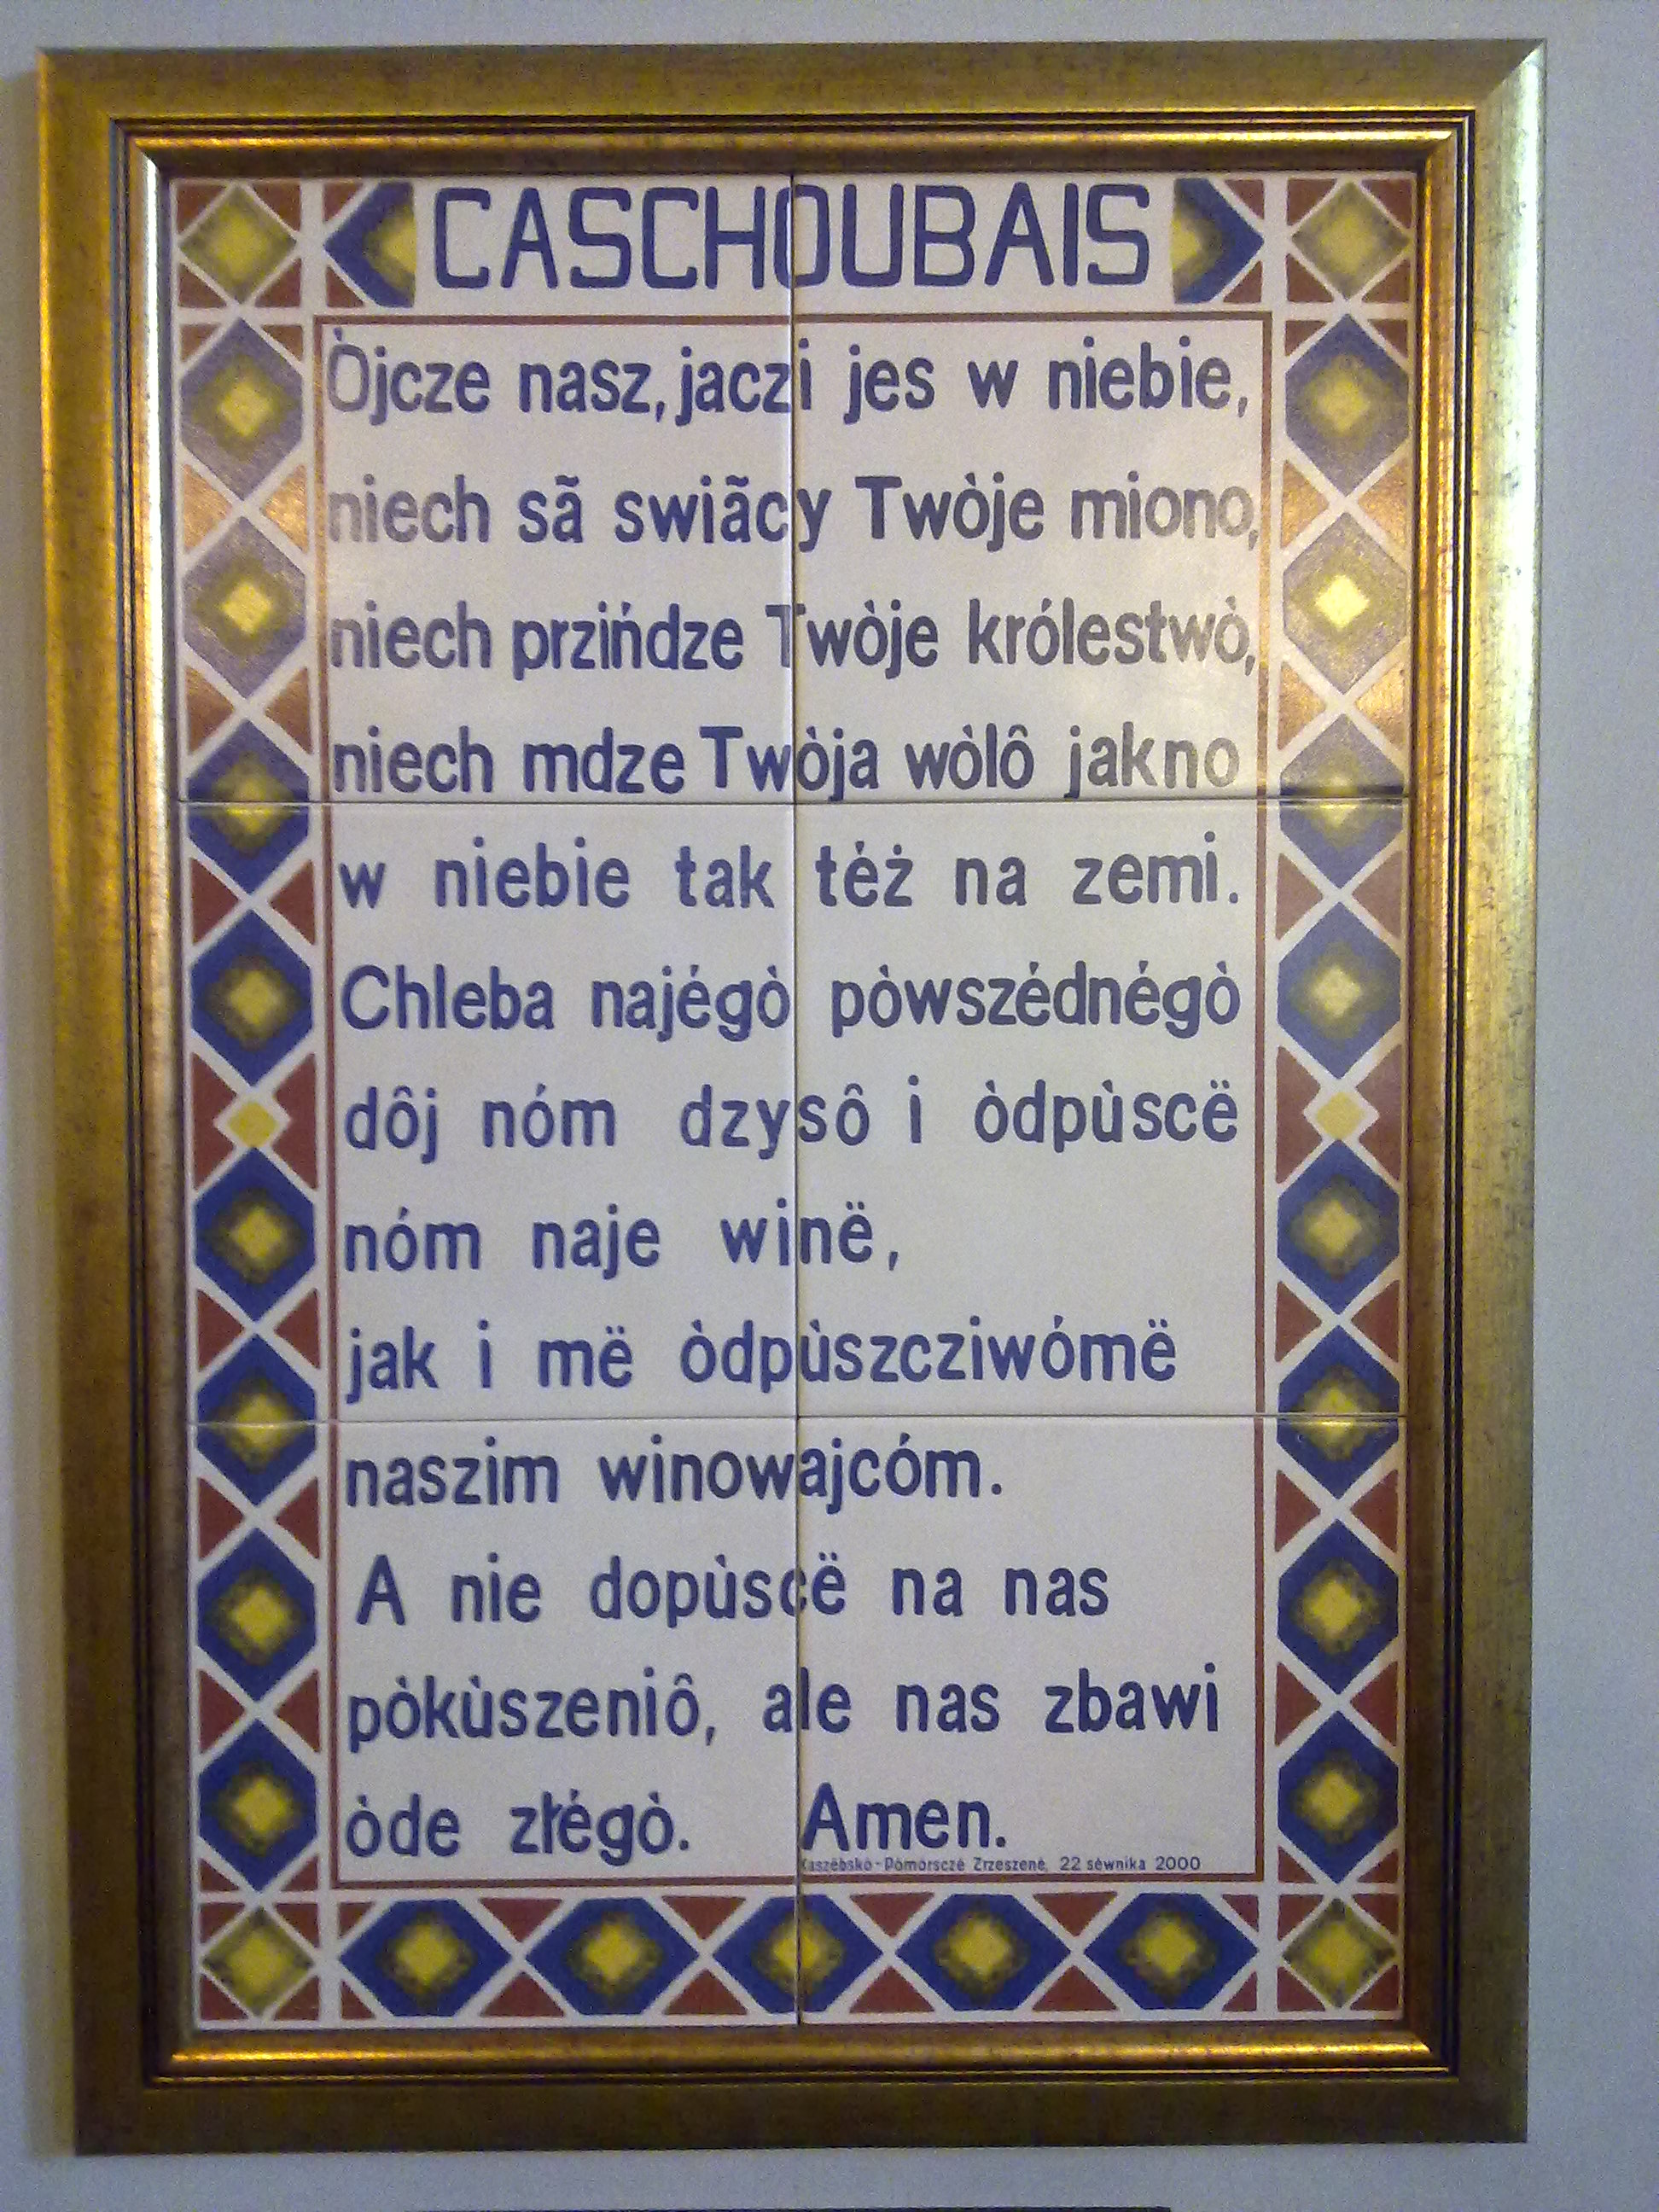 CASCHOUBAIS
Òjcze nasz, jaczi jes w niebie,
niech sã swiãcy Twòje miono,
niech przińdze Twòje królestwò,
niech mdze Twòja wòlô jakno
w niebie tak téż na zemi.
Chleba najégò pòwszédnégò
dôj nóm dzysô i òdpùscë
nóm naje winë,
jak i më òdpùszcziwómë
naszim winowajcóm.
A nie dopùscë na nas
pòkùszeniô, ale nas zbawi
òde złégò. Amen.
Kaszëbskò-Pòmòrsczé Zrzeszenié, 22 séwnika 2000